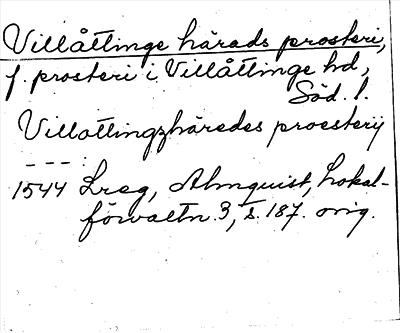 Villåttinge härads prosteri,
f. prosteri i Villåttinge hd,
Söd. l.
Villottingzhäredes proesterij
----
1544 Lreg, Almquist, Lokal-
förvaltn. 3, s. 187. orig.